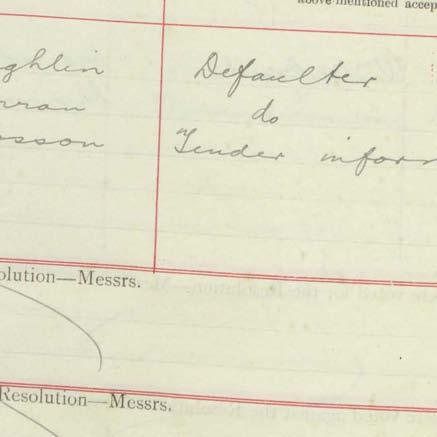 above-mentioned accep
ghlin Defaulter
rran do
sson "Tender inform
olution—Messrs.
Resolution—Messrs.